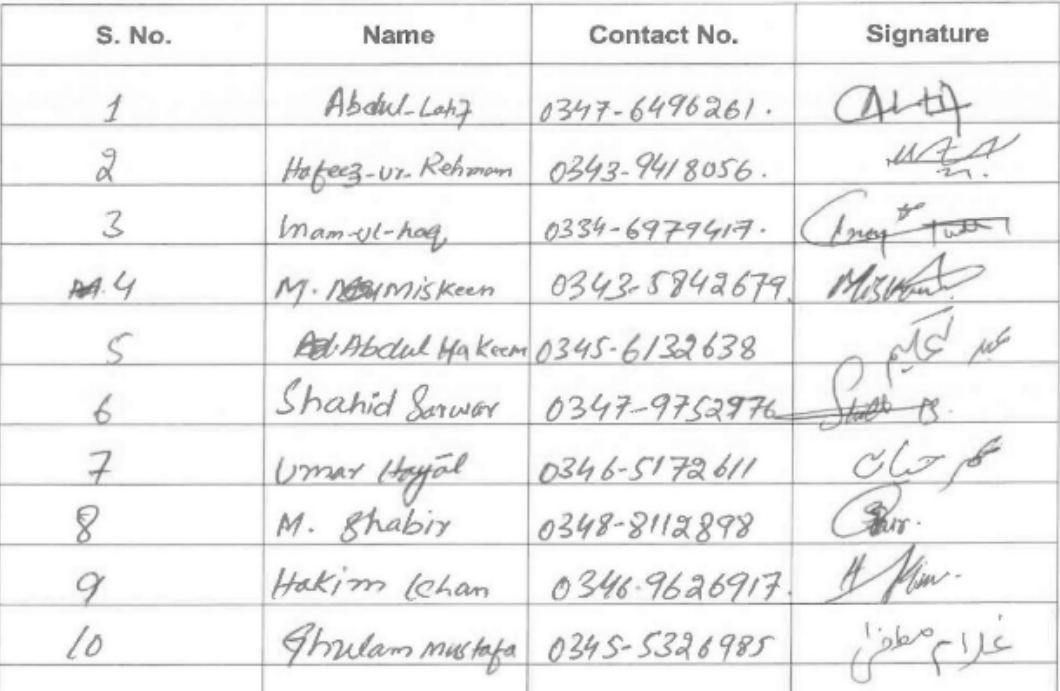 S. No. Name Contact No. Signature
1 Abdul-Latif 0347-6496261.
2 Hafeez-ur-Rehmam 0343-9418056.
3 Inam-ul-haq, 0334-6979417.
4 M. Miskeen 0343-5842679
5 Abdul Hakeem 0345-6132638 عبد الحکیم
6 Shahid Sarwar 0347-9752976
7 Umar Hayāt 0346-5172611 عمر حیات
8 M. Shabir 0348-8112898
9 Hakim Khan 0346-9626917.
10 Ghulam mustafa 0345-5326985 غلام مصطفیٰ